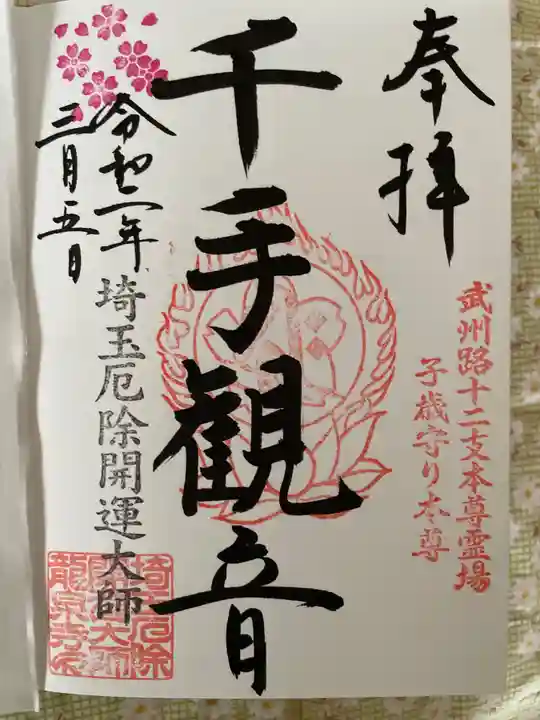 奉拝
武州路十二支本尊霊場
子歳守り本尊
千手観音
令和二年
三月五日
埼玉厄除開運大師
埼玉厄除
開運大師
龍泉寺印